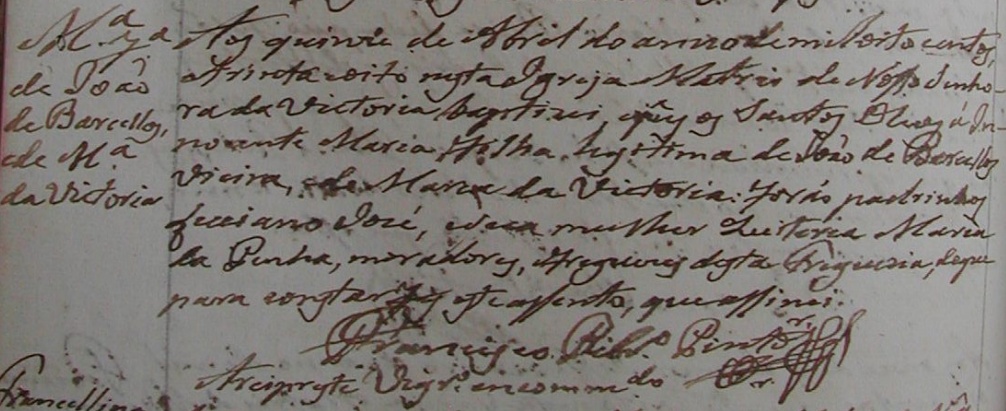 M.ª
de João
de Barcellos,
e de M.ª
da Victoria
Aos quinze de Abril do anno de mil oito centos,
e trinta e oito nesta Igreja Matris de Nossa Senho
ra da Victoria baptizei, e pus os Santos Oleos á In
nocente Maria, filha legitima de João de Barcellos
Vieira, e de Maria da Victoria: forão padrinhos
Luciano José, e sua mulher Quiteria Maria
da Penha, moradores, e freguezes desta Freguezia, de que
para constar fiz este assento, que assinei.
Francisco Ribr.º Pinto
Arcipreste Vigr.º encommdo
Francellina